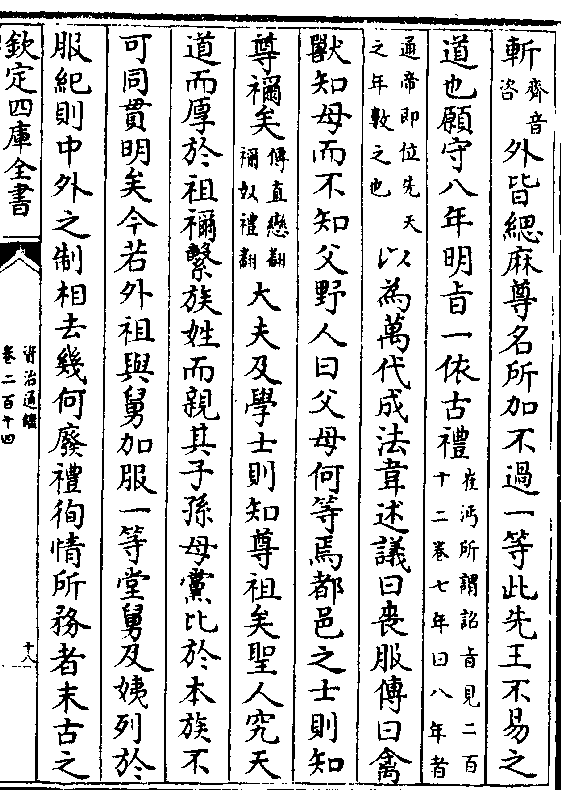 斬齊音咨外皆緦麻尊名所加不過一等此先王不易之
道也願守八年明旨一依古禮崔沔所謂詔旨見二百十二卷七年曰八年者
通帝即位先天之年數之也以為萬代成法韋述議曰喪服傳曰禽
獸知母而不知父野人曰父母何等焉都邑之士則知
尊禰矣傳直戀翻禰奴禮翻大夫及學士則知尊祖矣聖人究天
道而厚於祖禰繫族姓而親其子孫母黨比於本族不
可同貫明矣今若外祖與舅加服一等堂舅及姨列於
服紀則中外之制相去幾何廢禮徇情所務者末古之
欽定四庫全書
資治通鑑
卷二百十四
十八